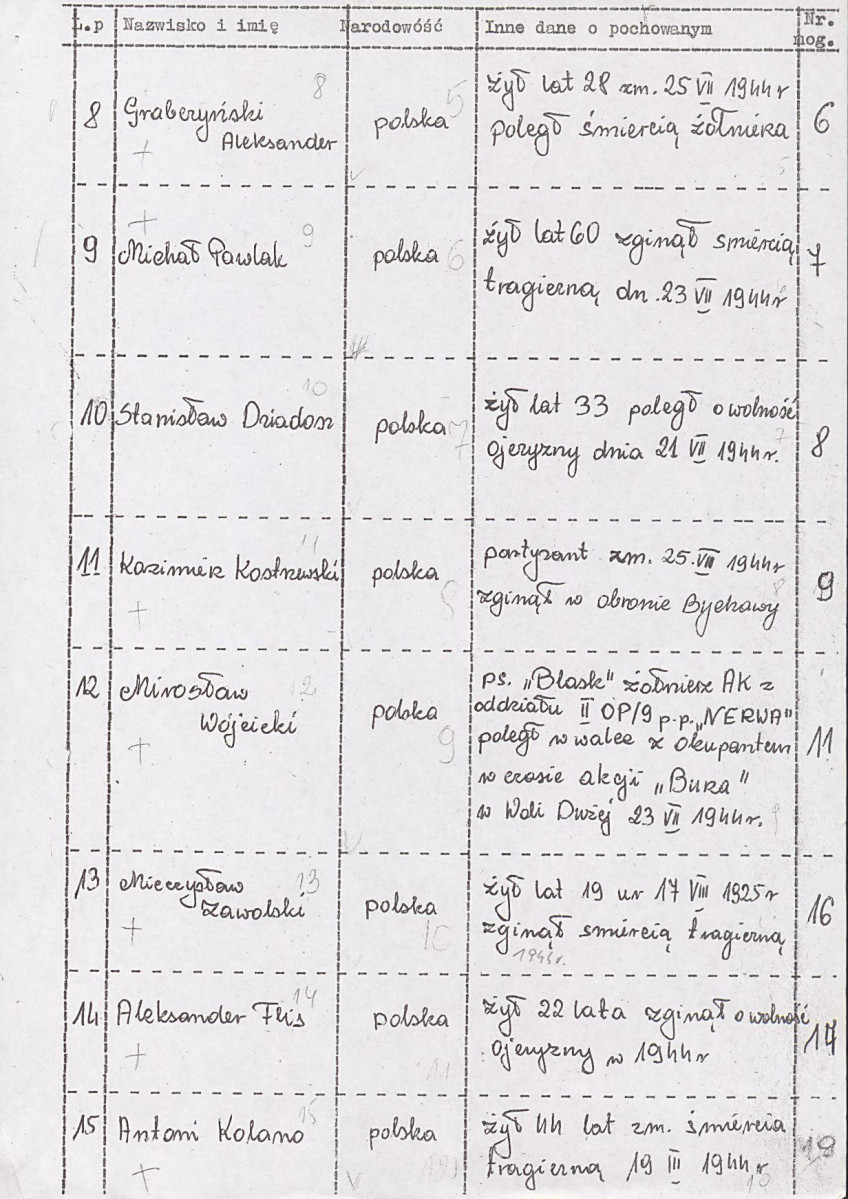 L.p Nazwisko i imię Narodowość Inne dane o pochowanym Nr. mog.
8 Grabczyński Aleksander 8 polska 5 żył lat 28 zm. 25 VII 1944 r
poległ śmiercią żołnierza 6
9 Michał Pawlak 9 polska 6 żył lat 60 zginął śmiercią
tragiczną dn. 23 VII 1944 r 7
10 Stanisław Dziadosz 10 polska 7 żył lat 33 poległ o wolność
ojczyzny dnia 21 VII 1944 r. 8
11 Kazimierz Kostrzewski 11 polska 8 partyzant zm. 25. VII 1944 r
zginął w obronie Bychawy 9
12 Mirosław Wójcicki 12 polska 9 ps. „Blask" żołnierz AK z
oddziału II OP/9 p.p. „NERWA"
poległ w walce z okupantem
w czasie akcji „Burza"
w Woli Dużej 23 VII 1944 r. 11
13 Mieczysław Zawolski 13 polska 10 żył lat 19 ur 17 VIII 1925 r
zginął śmiercią tragiczną 16
14 Aleksander Flis 14 polska 11 żył 22 lata zginął o wolność
ojczyzny w 1944 r 17
15 Antoni Kolano 15 polska żył 44 lat zm. śmiercia
tragiczną 19 III 1944 r. 19